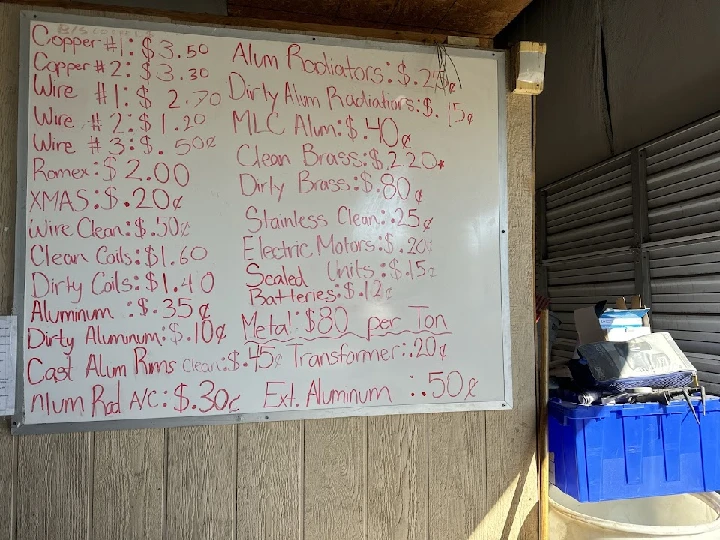 Copper #1: $3.50
Copper #2: $3.30
Wire #1: $2.70
Wire #2: $1.20
Wire #3: $.50¢
Romex: $2.00
XMAS: $.20¢
Wire Clean: $.50¢
Clean Coils: $1.60
Dirty Coils: $1.40
Aluminum : $.35¢
Dirty Aluminum: $.10¢
Cast Alum Rims Clean: $.45¢
Alum Rad A/C: $.30¢
Alum Radiators: $.25¢
Dirty Alum Radiators: $.15¢
MLC Alum: $.40¢
Clean Brass: $2.20
Dirty Brass: $.80¢
Stainless Clean: .25¢
Electric Motors: $.20¢
Sealed Units : $.15¢
Batteries: $.12¢
Metal: $80 per Ton
Transformer: .20¢
Ext. Aluminum : .50¢